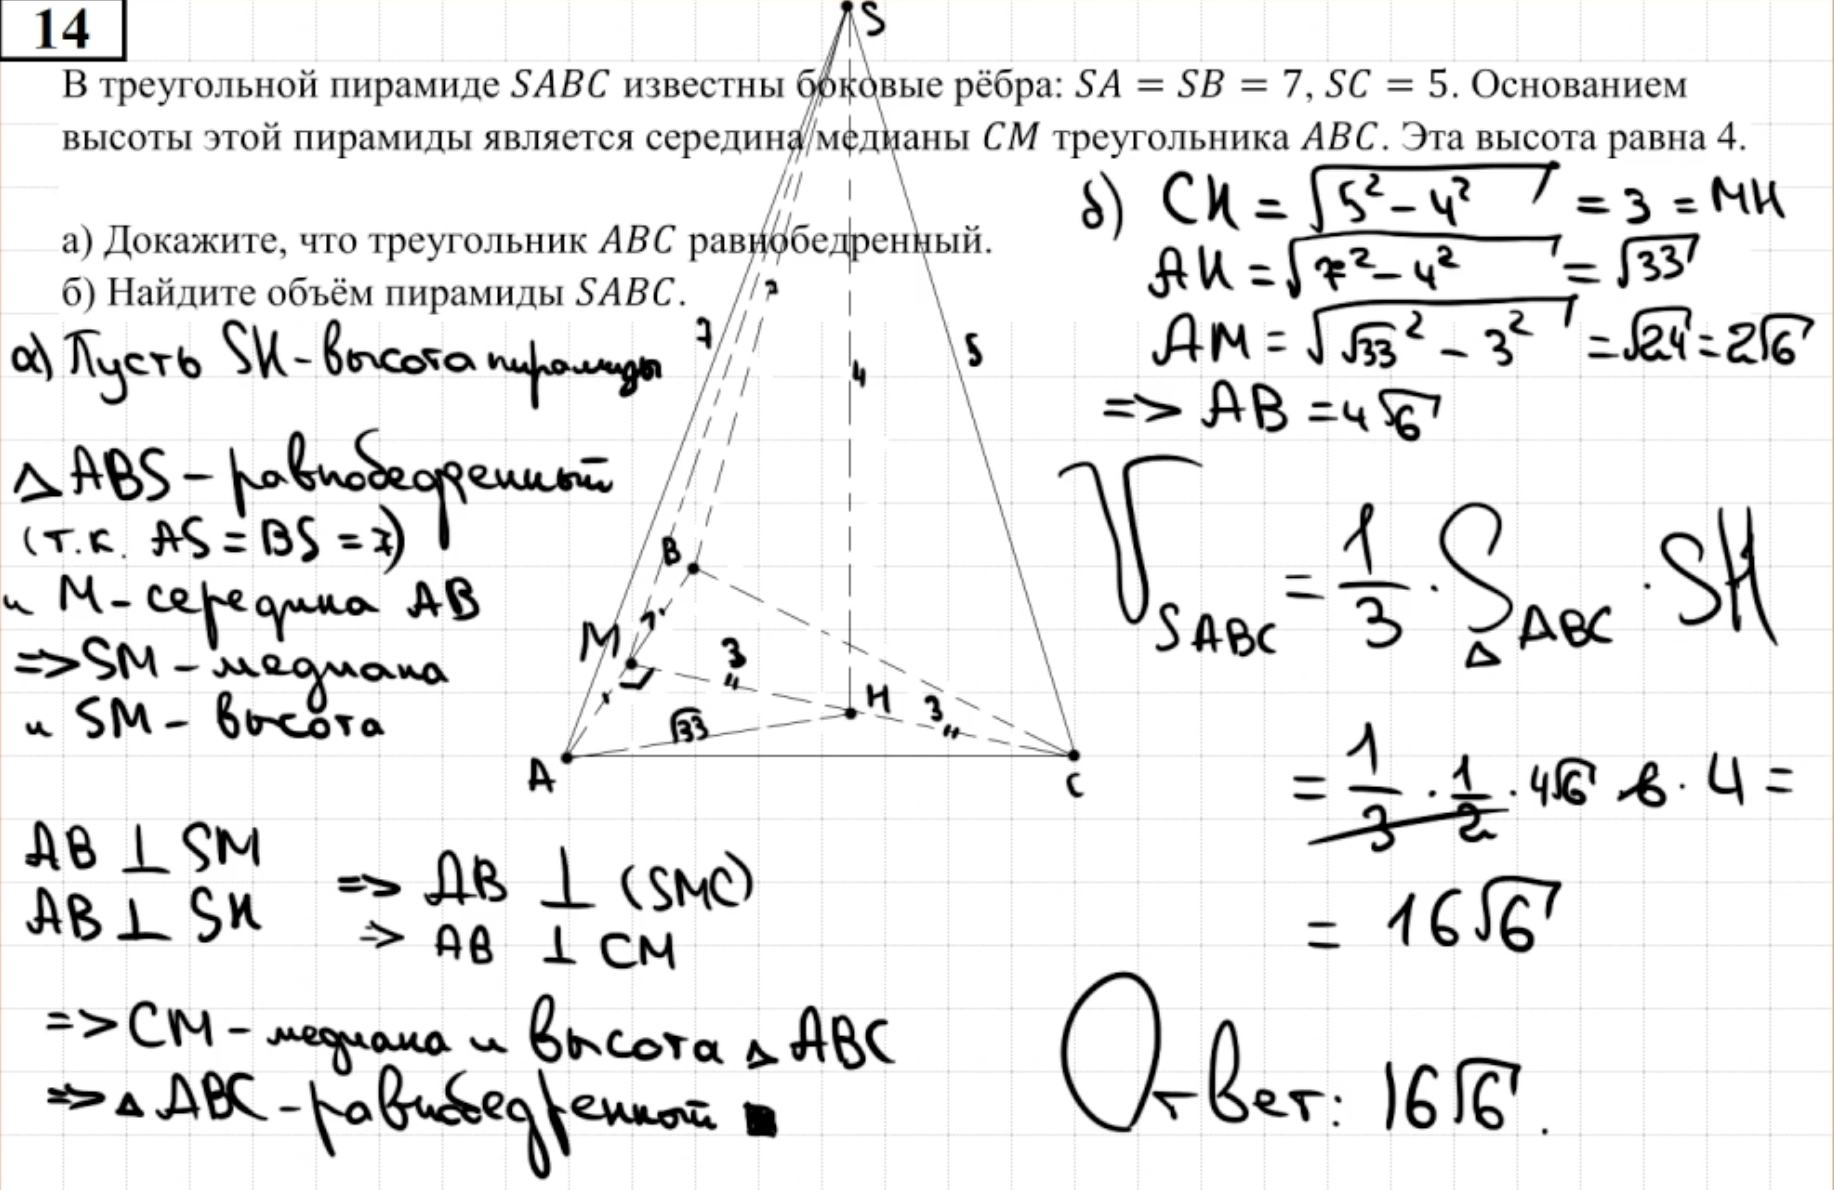 14
В треугольной пирамиде SABC известны боковые рёбра: SA = SB = 7, SC = 5. Основанием
высоты этой пирамиды является середина медианы CM треугольника ABC. Эта высота равна 4.
а) Докажите, что треугольник ABC равнобедренный.
б) Найдите объём пирамиды SABC.
а) Пусть SH - высота пирамиды
△ ABS - равнобедренный
(т.к. AS = BS = 7)
и M - середина AB
=> SM - медиана
и SM - высота
AB ⊥ SM
AB ⊥ SH
=> AB ⊥ (SMC)
=> AB ⊥ CM
=> CM - медиана и высота △ ABC
=> △ ABC - равнобедренный ■
S
7
7
4
5
B
M
3
H
3
√33
A
C
б) CH = √(5² - 4²) = 3 = MH
AH = √(7² - 4²) = √33
AM = √(√33² - 3²) = √24 = 2√6
=> AB = 4√6
V SABC = 1/3 · S △ ABC · SH
= 1/3 · 1/2 · 4√6 · 6 · 4 =
= 16√6
Ответ: 16√6.